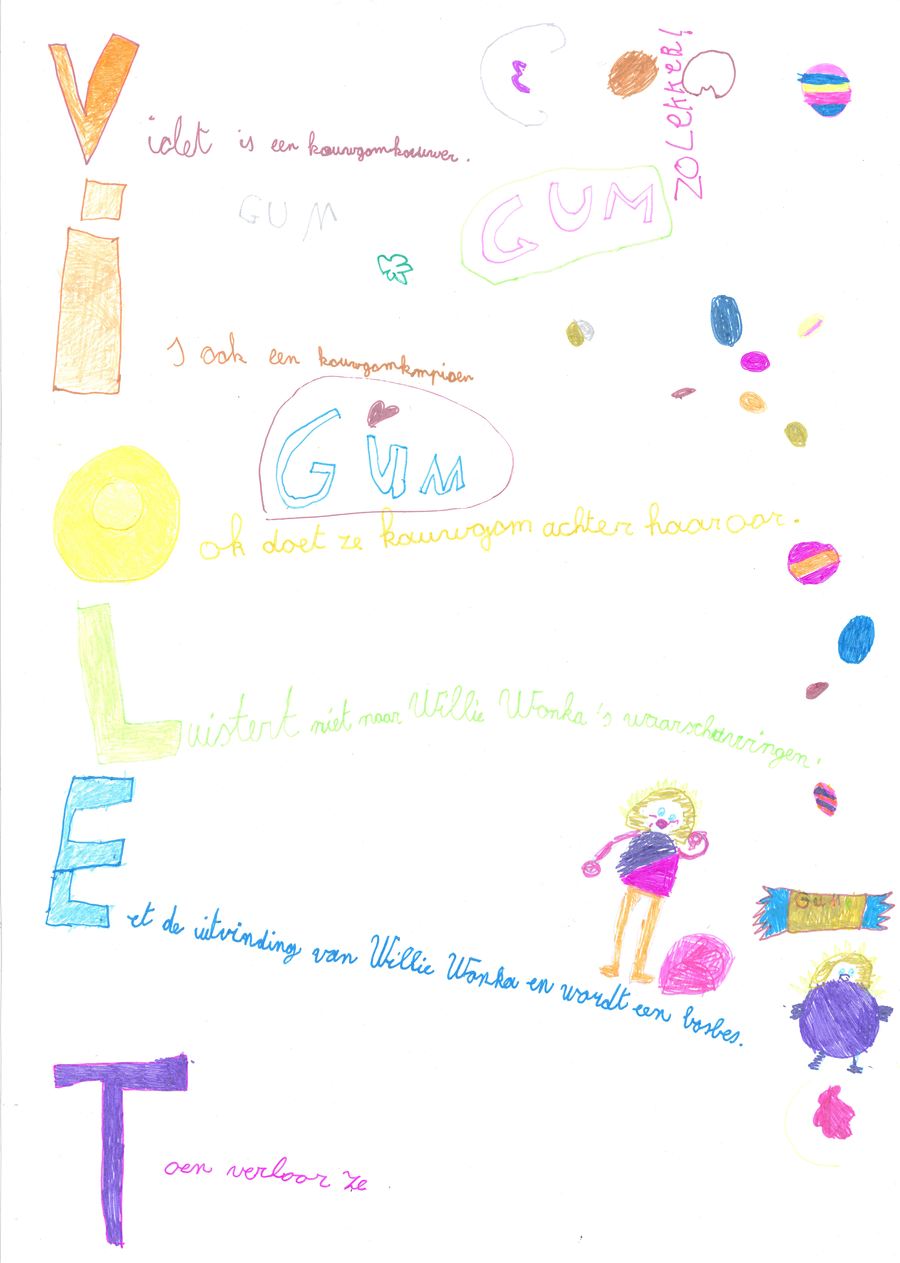 Violet is een kauwgomkauwer.
ZO LEKKER!
GUM
GUM
Is ook een kauwgomkmpioen
GUM
Ook doet ze kauwgom achter haar oor.
Luistert niet naar Willie Wonka's waarschuwingen.
Eet de uitvinding van Willie Wonka en wordt een bosbes.
Toen verloor ze